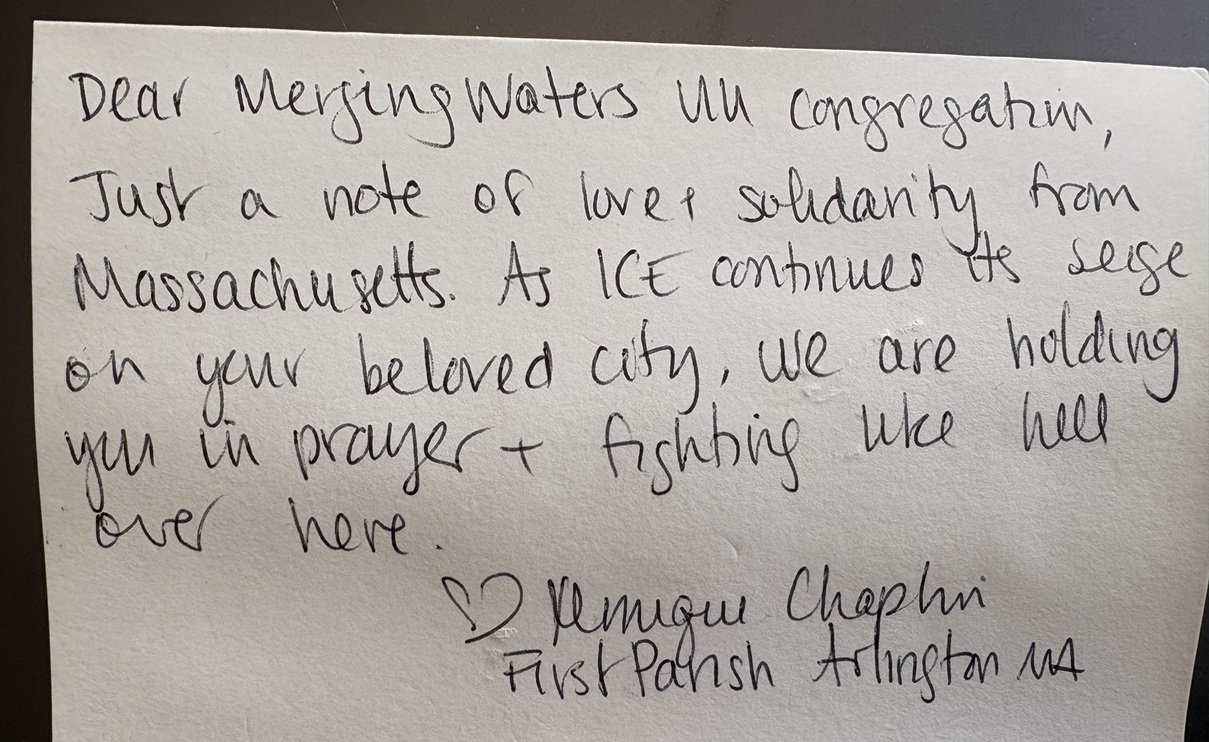 Dear Merging Waters UU congregation,
Just a note of love + solidarity from
Massachusetts. As ICE continues its seige
on your beloved city, we are holding
you in prayer + fighting like hell
over here.
♡ Chaplin
First Parish Arlington MA